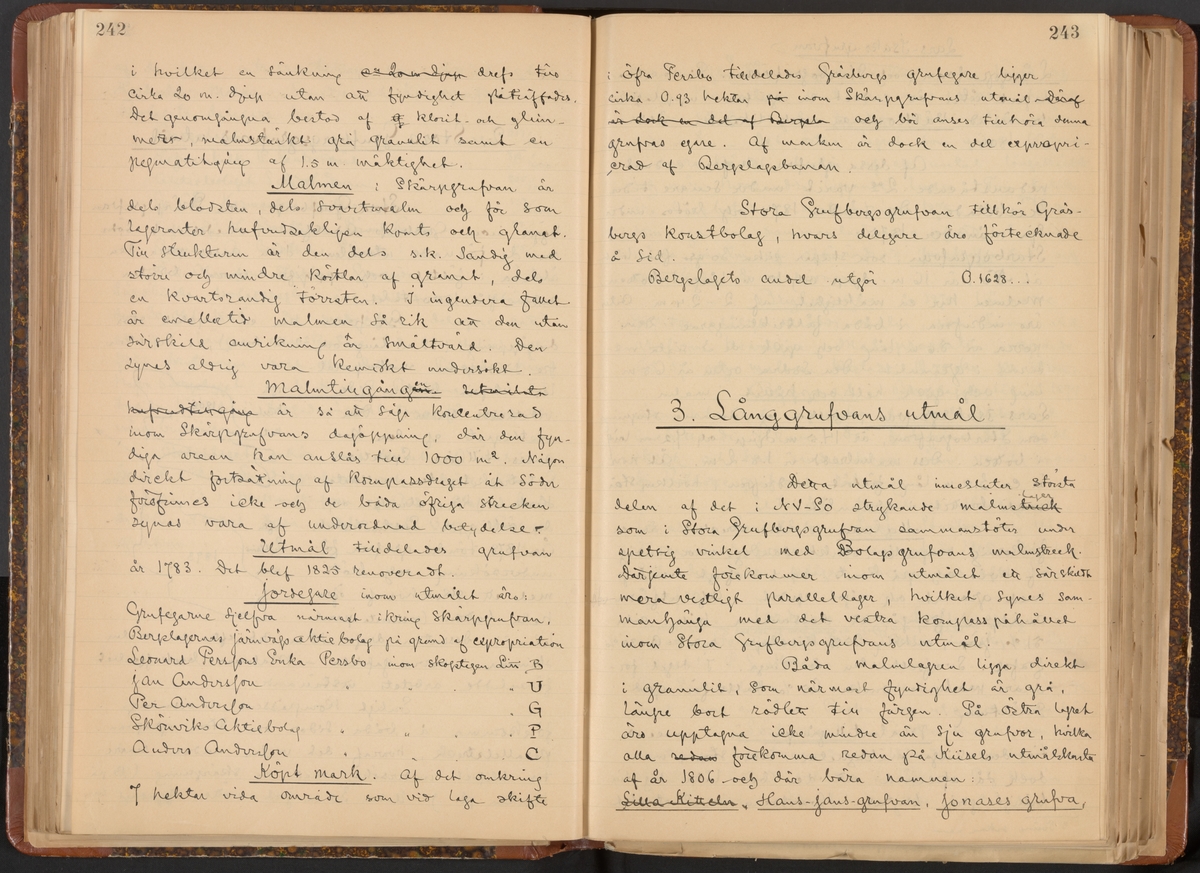 242
i hvilket en sänkning drefs till
cirka 20 m. djup utan att fyndighet påträffades.
Det genomgångna bestod af klorit- och glim-
mer, malmstänkt grå granulit samt en
pegmatitgång af 1.5 m. mäktighet.
Malmen i Skärpgrufvan är
dels blodsten, dels svartmalm och för som
lagerarter hufvudsakligen kvarts och glanat.
Till strukturen är den dels s.k. sandig med
större och mindre körtlar af granat, dels
en kvartsrandig torrsten. I ingendera fallet
är emellertid malmen så rik att den utan
särskild anrikning är smältvärd. Den
synes aldrig vara kemiskt undersökt.
Malmtillgången
är så att säga koncentrerad
inom Skärpgrufvans dagöppning, där den fyn-
diga arean kan anslås till 1000 m². Någon
direkt fortsättning af kompassdraget åt Söder
förefinnes icke och de båda öfriga strecken
synas vara af underordnad betydelse.
Utmål tilldelades grufvan
år 1783. Det blef 1825 renoveradt.
Jordegare inom utmålet äro:
Grufegarne sjelfva närmast ikring Skärpgrufvan,
Bergslagernas järnvägsaktiebolag på grund af expropriation
Leonard Perssons Enka Persbo inom skogstegen Litt. B
Jan Andersson " . . . " U
Per Andersson . G
Skönviks Aktiebolag " " . " P
Anders Andersson " . . " C
Köpt mark. Af det omkring
7 hektar vida område som vid laga skifte
243
i Öfra Persbo tilldelades Gräsbergs grufegare ligger
cirka 0.93 hektar på inom Skärpgrufvans utmål Däraf
är dock en del af Bergsla och bör anses tillhöra denna
grufvas egare. Af marken är dock en del expropri-
erad af Bergslagsbanan.
Stora Grufbergsgrufvan tillhör Gräs-
bergs konstbolag, hvars delegare äro förtecknade
å sid.
Bergslagets andel utgör 0.1628...
3. Långgrufvans utmål
Detta utmål innesluter största
delen af det i NV-SO strykande malmlager
som i Stora Grufbergsgrufvan sammanstöter under
spetsig vinkel med Bolagsgrufvans malmstreck.
Därjemte förekommer inom utmålet ett särskildt
mera vestligt parallellager, hvilket synes sam-
manhänga med det vestra kompasspåhållet
inom Stora Grufbergsgrufvans utmål.
Båda malmlagren ligga direkt
i granulit, som närmast fyndighet är grå,
längre bort rödlett till färgen. På östra lagret
äro upptagna icke mindre än sju grufvor, hvilka
alla redan förekomma redan på Kiisels utmålskarta
af år 1806 och där bära namnen:
Lilla Kittelen, Hans-Jans-grufvan, Jonases grufva,